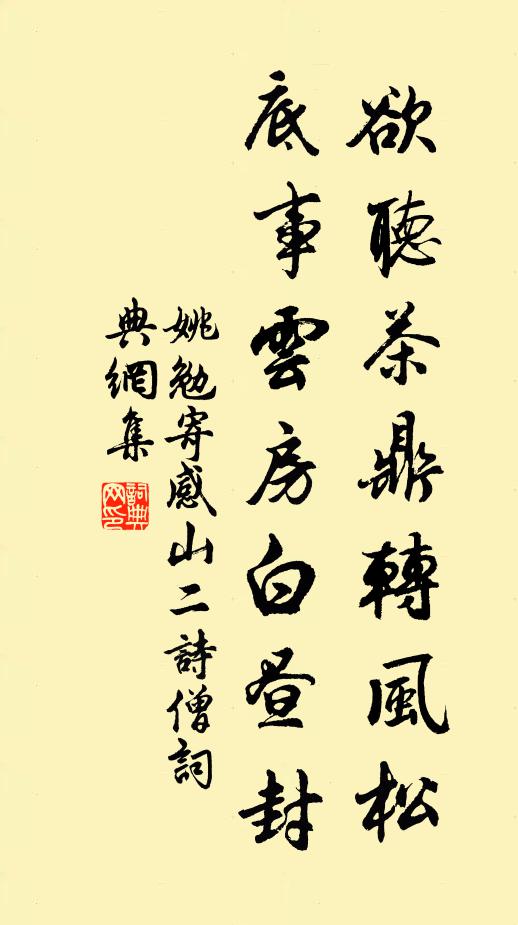 欲聽茶鼎轉風松
底事雲房白昼封
姚勉寄感山二詩僧詞
典網集
詞典
网印